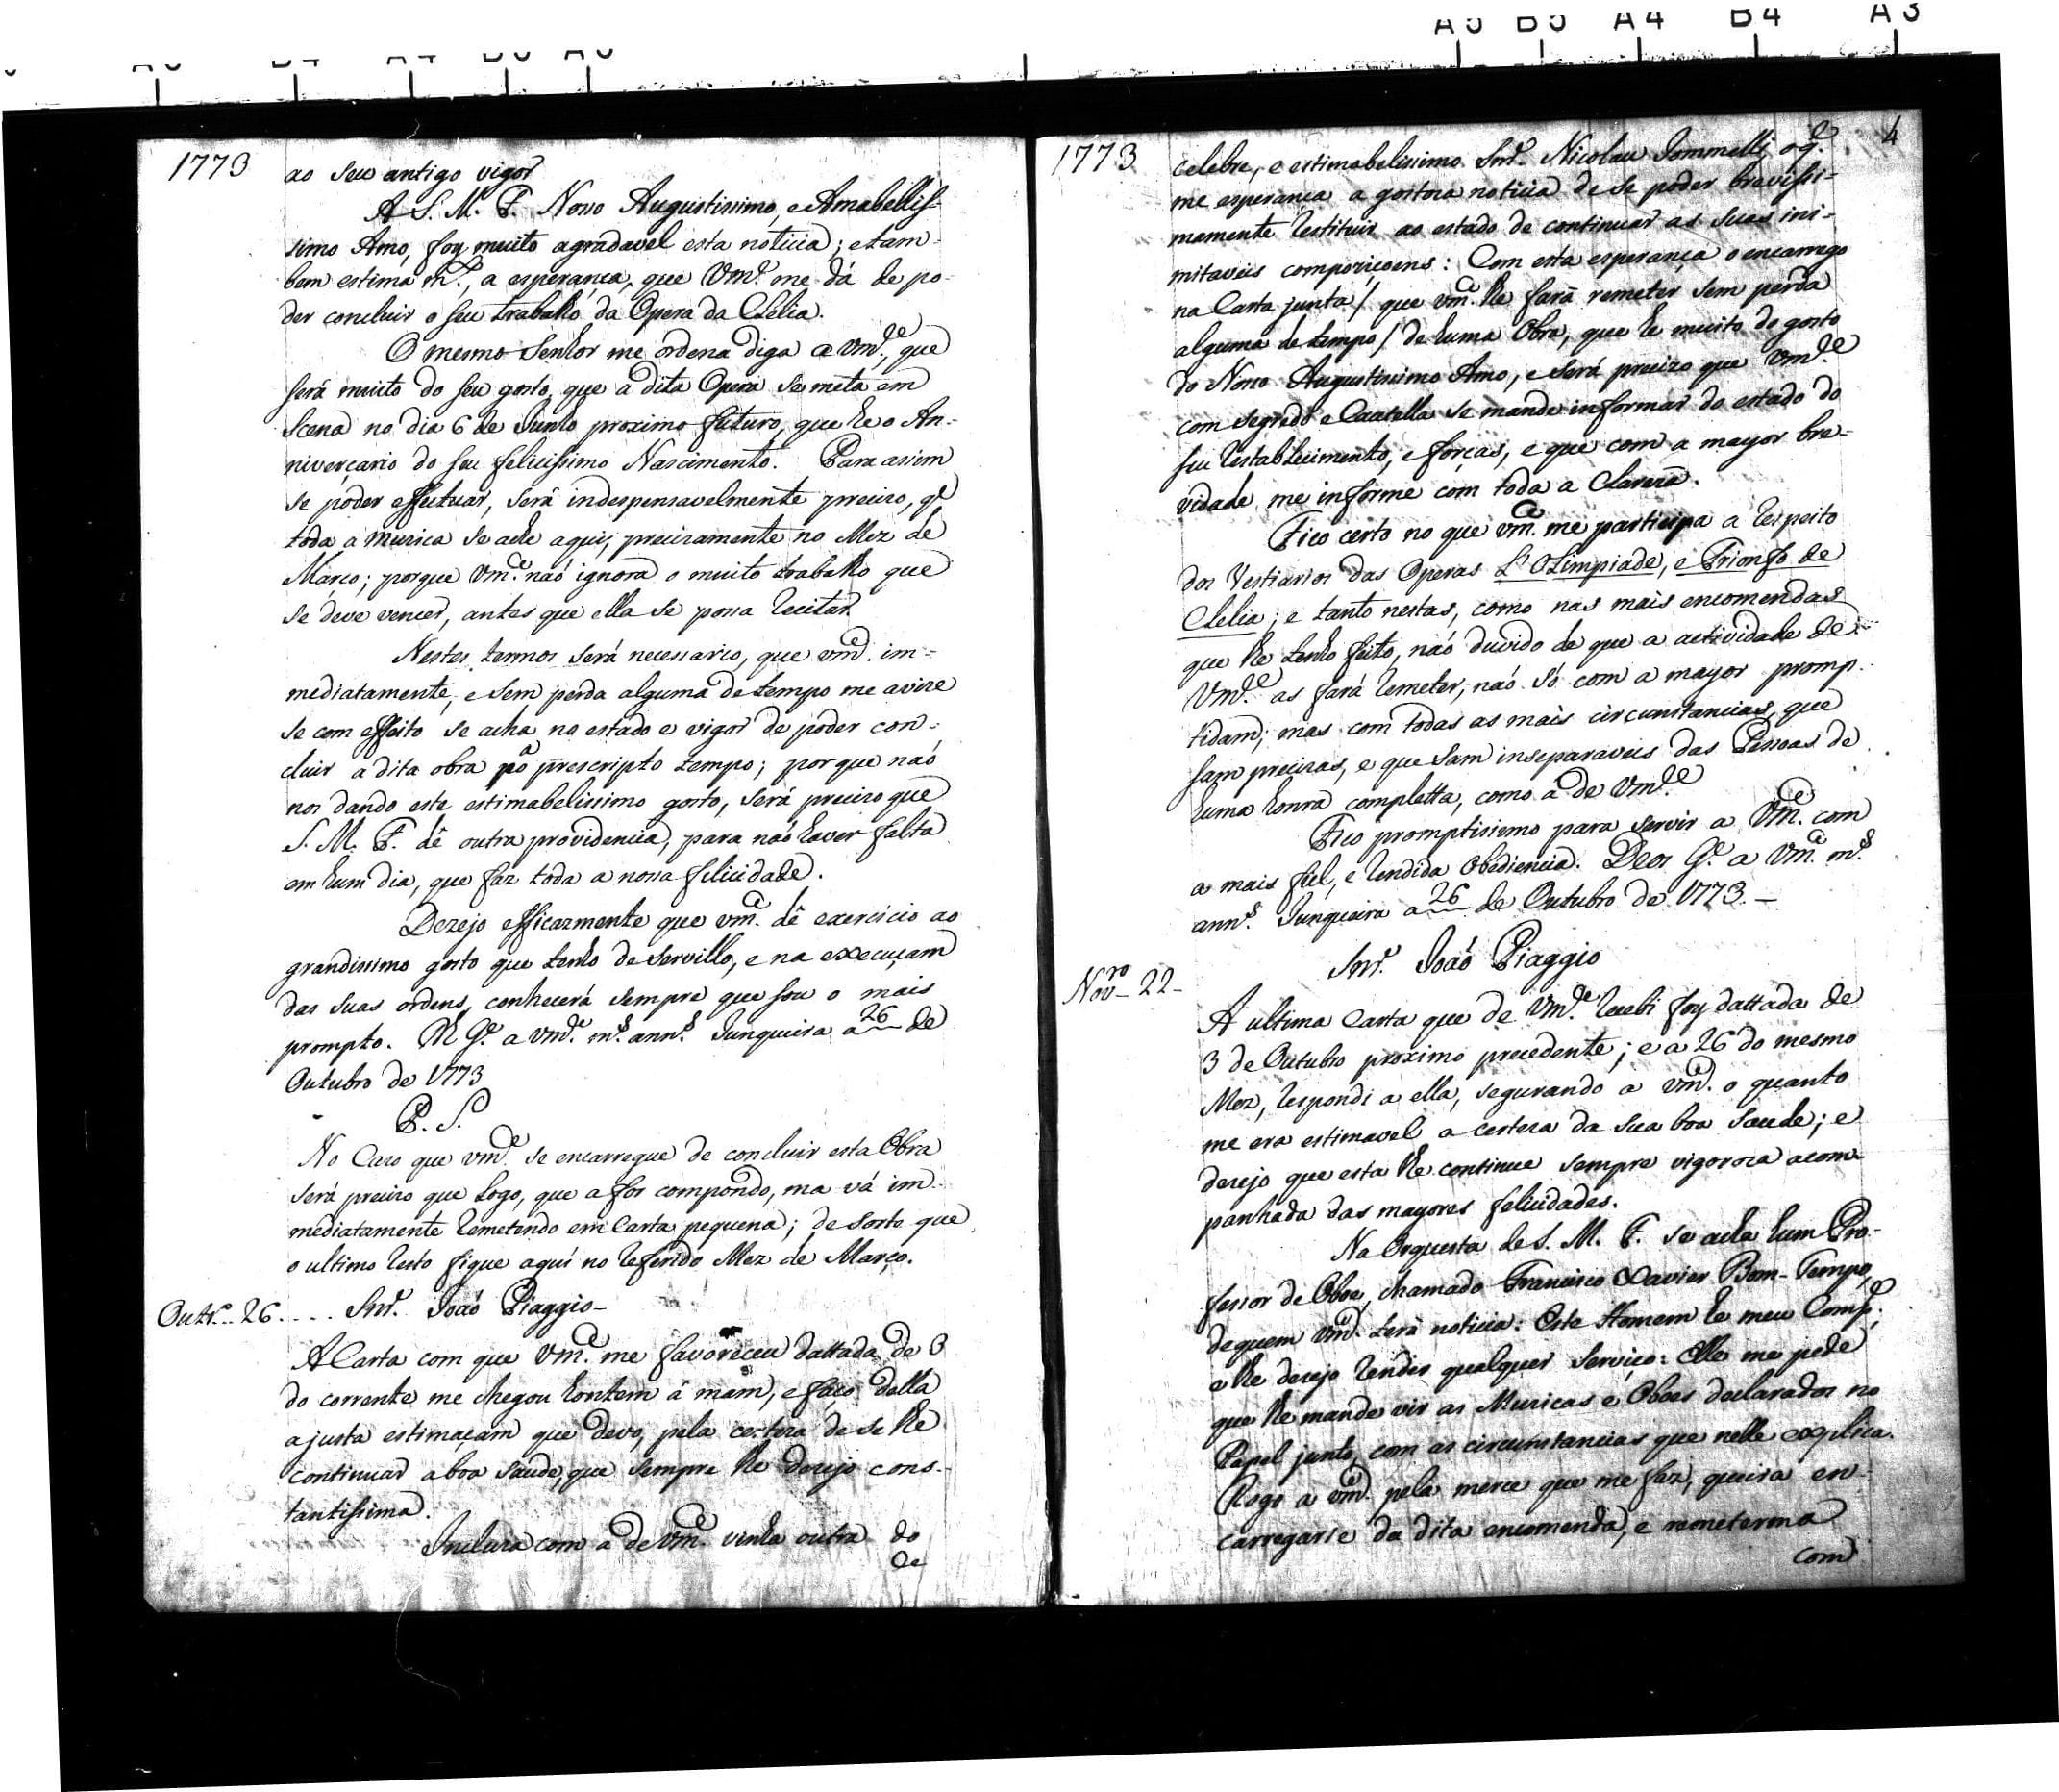 1773
ao seu antigo vigor
A S. M. F. Nosso Augustissimo, e Amabellis-
simo Amo, foy muito agradavel esta noticia; e tam-
bem estima m.to, a esperança, que Vm.ce me dá de po-
der concluir o seu trabalho da Opera da Clelia.
O mesmo Senhor me ordena diga a Vm.ce, que
será muito do seu gosto, que a dita Opera se meta em
Scena no dia 6 de Junho proximo futuro, que he o An-
niverçario do seu felicissimo Nascimento. Para assim
se poder effectuar, será indespensavelmente precizo, q.e
toda a musica se ache aqui, precizamente no Mez de
Março; porque Vm.ce naõ ignora o muito trabalho que
se deve vencer, antes que ella se possa recitar.
Nestes termos será necessario, que vm.ce im-
mediatamente, e sem perda alguma de tempo me avize
se com effeito se acha no estado e vigor de poder con-
cluir a dita obra no prescripto tempo; porque naõ
nos dando este estimabelissimo gosto, será precizo que
S. M. F. dê outra providencia, para naõ haver falta
em hum dia, que faz toda a nossa felicidade.
Dezejo efficazmente que vm.ce dê exercicio ao
grandissimo gosto que tenho de servillo, e na execuçam
das suas ordens, conhecerá sempre que sou o mais
prompto. N. G.e a vm.ce m.s ann.s Junqueira a 26 de
Outubro de 1773
P. S.
No Cazo que vm.ce se encarregue de concluir esta Obra
será precizo que logo, que a for compondo, ma vá im-
mediatamente remetendo em Carta pequena; de sorte que
o ultimo resto fique aqui no referido Mez de Março.
Outr.o 26.... Snr. Joaõ Piaggio-
A Carta com que Vm.ce me favoreceu dattada de 3
do corrente me chegou hontem â mam, e faço della
a justa estimaçam que devo, pela certeza de se lhe
continuar a boa saude, que sempre lhe dezejo cons-
tantissima.
Incluza com a de Vm.ce vinha outra do
ce
1773
4
celebre, e estimabelissimo Snr. Nicolau Jommelli, o q.e
me esperança a gostoza noticia de se poder brevissi-
mamente restituir ao estado de continuar as suas ini-
mitaveis compoziçoens: Com esta esperança o encarrego
na Carta junta / que vm.ce lhe fará remeter sem perda
alguma de tempo / de huma Obra, que he muito do gosto
do Nosso Augustissimo Amo, e será precizo que Vm.ce
com segredo e Cautella se mande informar do estado do
seu restablecimento, e forças, e que com a mayor bre-
vidade me informe com toda a Clareza.
Fico certo no que vm.ce me participa a respeito
dos Vestiarios das Operas L'Olimpiade, e Trionfo de
Clelia; e tanto nestas, como nas mais encomendas
que lhe tenho feito, naõ duvido de que a actividade de
Vm.ce as fará remeter, naõ só com a mayor promp-
tidam; mas com todas as mais circunstancias, que
sam precizas, e que sam inseparaveis das Pessoas de
huma honra completta, como a de Vm.ce
Fico promptissimo para servir a Vm.ce com
a mais fiel, e rendida Obediencia. Deos G.e a Vm.ce m.s
ann.s Junqueira a 26 de Outubro de 1773.-
Nov.ro 22-
Snr. Joaõ Piaggio
A ultima Carta que de Vm.ce recebi foy dattada de
3 de Outubro proximo precedente; e a 26 do mesmo
Mez, respondi a ella, segurando a vm.ce o quanto
me era estimavel a certeza da sua boa saude; e
dezejo que esta lhe continue sempre vigoroza acom-
panhada das mayores felicidades.
Na Orquesta de S. M. F. se acha hum Pro-
fessor de Oboe, chamado Francisco Xavier Bom-Tempo,
de quem vm.ce terá noticia: Este Homem he meu Comp.e,
e lhe dezejo render qualquer serviço: Elle me pede
que lhe mande vir as Muzicas e Oboes declarados no
Papel junto, com as circunstancias que nelle explica.
Rogo a vm.ce pela merce que me faz, queira en-
carregarse da dita encomenda, e remeterma
com